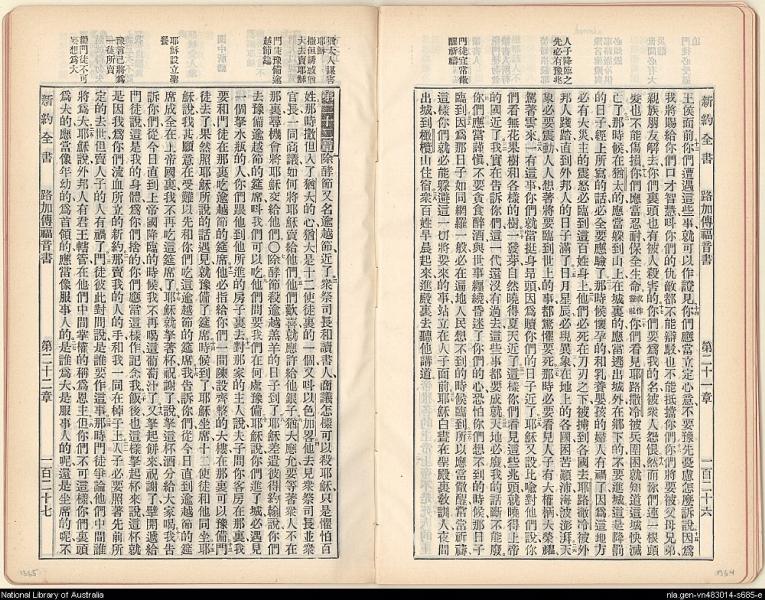 新約全書 路加傳福音書 第二十一章 一百二十六
人子降臨之先必有豫兆
門徒宜當常儆醒祈禱
王侯面前你們遭遇這些事就可以作證見你們應當立定心意不要豫先憂慮怎麼訴說因爲
我將賜給你們口才智慧呌你們的仇敵都不能辯駁也不能抵擋你們你們將要被父母兄弟
親族朋友解去你們裏頭也有被人殺害的你們要爲我的名被衆人怨恨然而你們連一根頭
髮也不能傷損你們應當忍耐保全生命你們看見耶路撒冷被兵圍困就知道這城快滅
亡了那時候在猶太的應當躱到山上在城裏的應當逃出城外在鄉下的不要進城這是降罰
的日子經上所寫的話必全要應驗了那時候懷孕的和乳養嬰孩的婦人有禍了因爲這地方
必有大災主的震怒必臨到這百姓身上他們必死在刀刃之下被擄到各國去耶路撒冷被外
邦人踐踏直到外邦人的日子滿了日月星辰必現異象在地上的各國困苦顚沛海波澎湃天
象必要震動人人想著將要臨到世上的事都驚懼要死那時必要看見人子有大權柄大榮耀
駕著雲來一有這事你們就當挺身昂頭因爲贖你們的日子近了耶穌又設比喻對他們說你
們看無花果樹和各樣的樹一發芽自然曉得夏天近了這樣你們看見這些兆頭就曉得上帝
的國近了我實在告訴你們這一代還沒有過去這些事都要成就天地必廢我的話斷不能廢
你們應當謹愼不要貪食醉酒與世事纏繞昏迷了你們的心恐怕你們想不到的時候那日子
臨到因爲那日子如同網羅一般必在遍地人民想不到的時候臨到所以應當儆醒常常祈禱
這樣你們就必能躱避這一切將要來的事站立在人子面前耶穌白晝在聖殿裏敎訓人夜間
出城到橄欖山住宿衆百姓早晨起來進殿裏去聽他講道
猶太人謀害耶穌
撒但誘惑猶大去賣耶穌
門徒豫備逾越節筵
耶穌設立聖餐
豫言己將爲一徒所賣
衞門徒不可妄想爲大
第二十二章除酵節又名逾越節近了衆祭司長和讀書人商議怎樣可以殺耶穌只是懼怕百
姓那時撒但入了猶大的心猶大是十二使徒裏的一個又呌以色加畧他去見衆祭司長並衆
官長一同商議如何將耶穌賣給他們他們歡喜就應許給他銀子猶大應允要等著衆人不在
那裏尋機會將耶穌交給他們〇除酵節殺逾越羔羊的日子到了耶穌差遣彼得約翰說你們
去豫備逾越節的筵席呌我們可以吃他們問要我們在何處豫備耶穌說你們進了城必遇見
一個拏水瓶的人你們跟他到他所進的房子裏去對那家的主人說夫子問你客房在那裏我
要和門徒在那裏吃逾越節的筵席他必指給你們一間陳設齊整的大樓在那裏可以豫備門
徒去了果然照耶穌所說的話遇見就豫備了筵席時候到了耶穌坐席十二使徒和他同坐耶
穌說我甚願意在受難以先和你們吃這逾越節的筵席我告訴你們從今日直到逾越節的筵
席成全在上帝國裏我不再吃這筵席了耶穌就拏著杯祝謝了說拏這杯酒分給大家喝我告
訴你們從今日直到上帝國降臨的時候我不再喝這葡萄汁了又拏起餅來祝謝了擘開遞給
門徒說這是我的身體爲你們捨的你們應當這樣作記念我飯後也這樣拏起杯來說這杯就
是因我爲你們流血所立的新約那賣我的人的手和我一同在棹子上人子必要照著先前所
定的去世但賣人子的人有禍了門徒彼此對問說是誰要作這事那時門徒爭論他們中間誰
爲大耶穌對他們說外邦人有君王轄管在他們中間掌權的稱爲恩主但你們不可這樣你們裏頭
爲大的應當像年幼的爲首領的應當像服事人的是誰爲大是服事人的呢還是坐席的呢不
新約全書 路加傳福音書 第二十二章 一百二十七
National Library of Australia
nla.gen-vn483014-s685-e